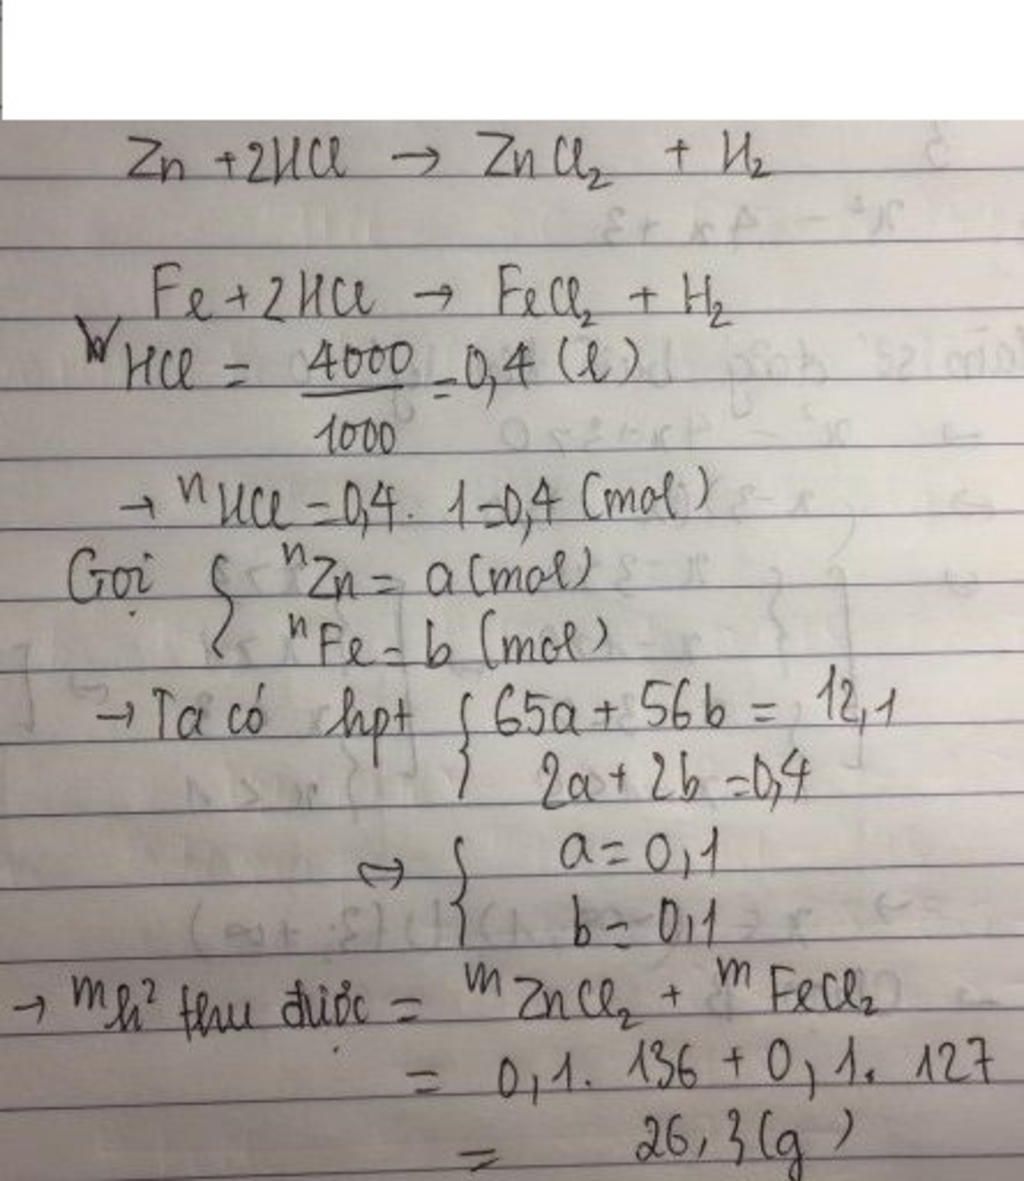 Zn + 2HCl → ZnCl₂ + H₂
Fe + 2HCl → FeCl₂ + H₂
V HCl = 4000/1000 = 0,4 (l)
→ nHCl = 0,4 . 1 = 0,4 (mol)
Gọi { nZn = a (mol)
nFe = b (mol)
→ Ta có hpt { 65a + 56b = 12,1
2a + 2b = 0,4
⇔ { a = 0,1
b = 0,1
→ mh² thu được = mZnCl₂ + mFeCl₂
= 0,1 . 136 + 0,1 . 127
= 26,3 (g)